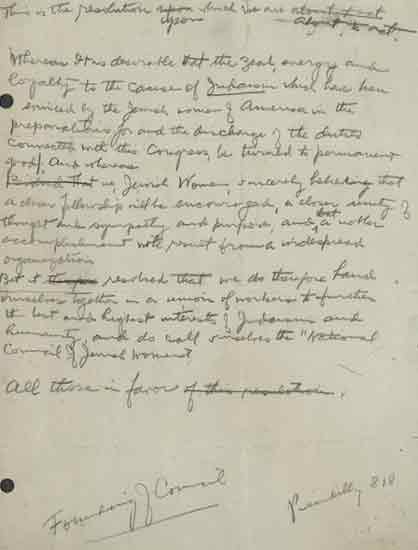 This is the resolution upon which we are about to act
upon about to act.
Whereas It is desirable that the zeal, energy and
loyalty to the cause of Judaism which have been
evinced by the Jewish women of America in the
preparations for and the discharge of the duties
connected with this Congress, be turned to permanent
good, And whereas
that we Jewish Women, sincerely believing that
a closer fellowship will be encouraged, a closer unity of
thought and sympathy and purpose, and that a nobler
accomplishment will result from a widespread
organization
Be it resolved that we do therefore band
ourselves together in a union of workers to further
the best and highest interests of Judaism and
humanity and do call ourselves the "National
Council of Jewish Women"
All those in favor of this resolution.
Founding of Council
818